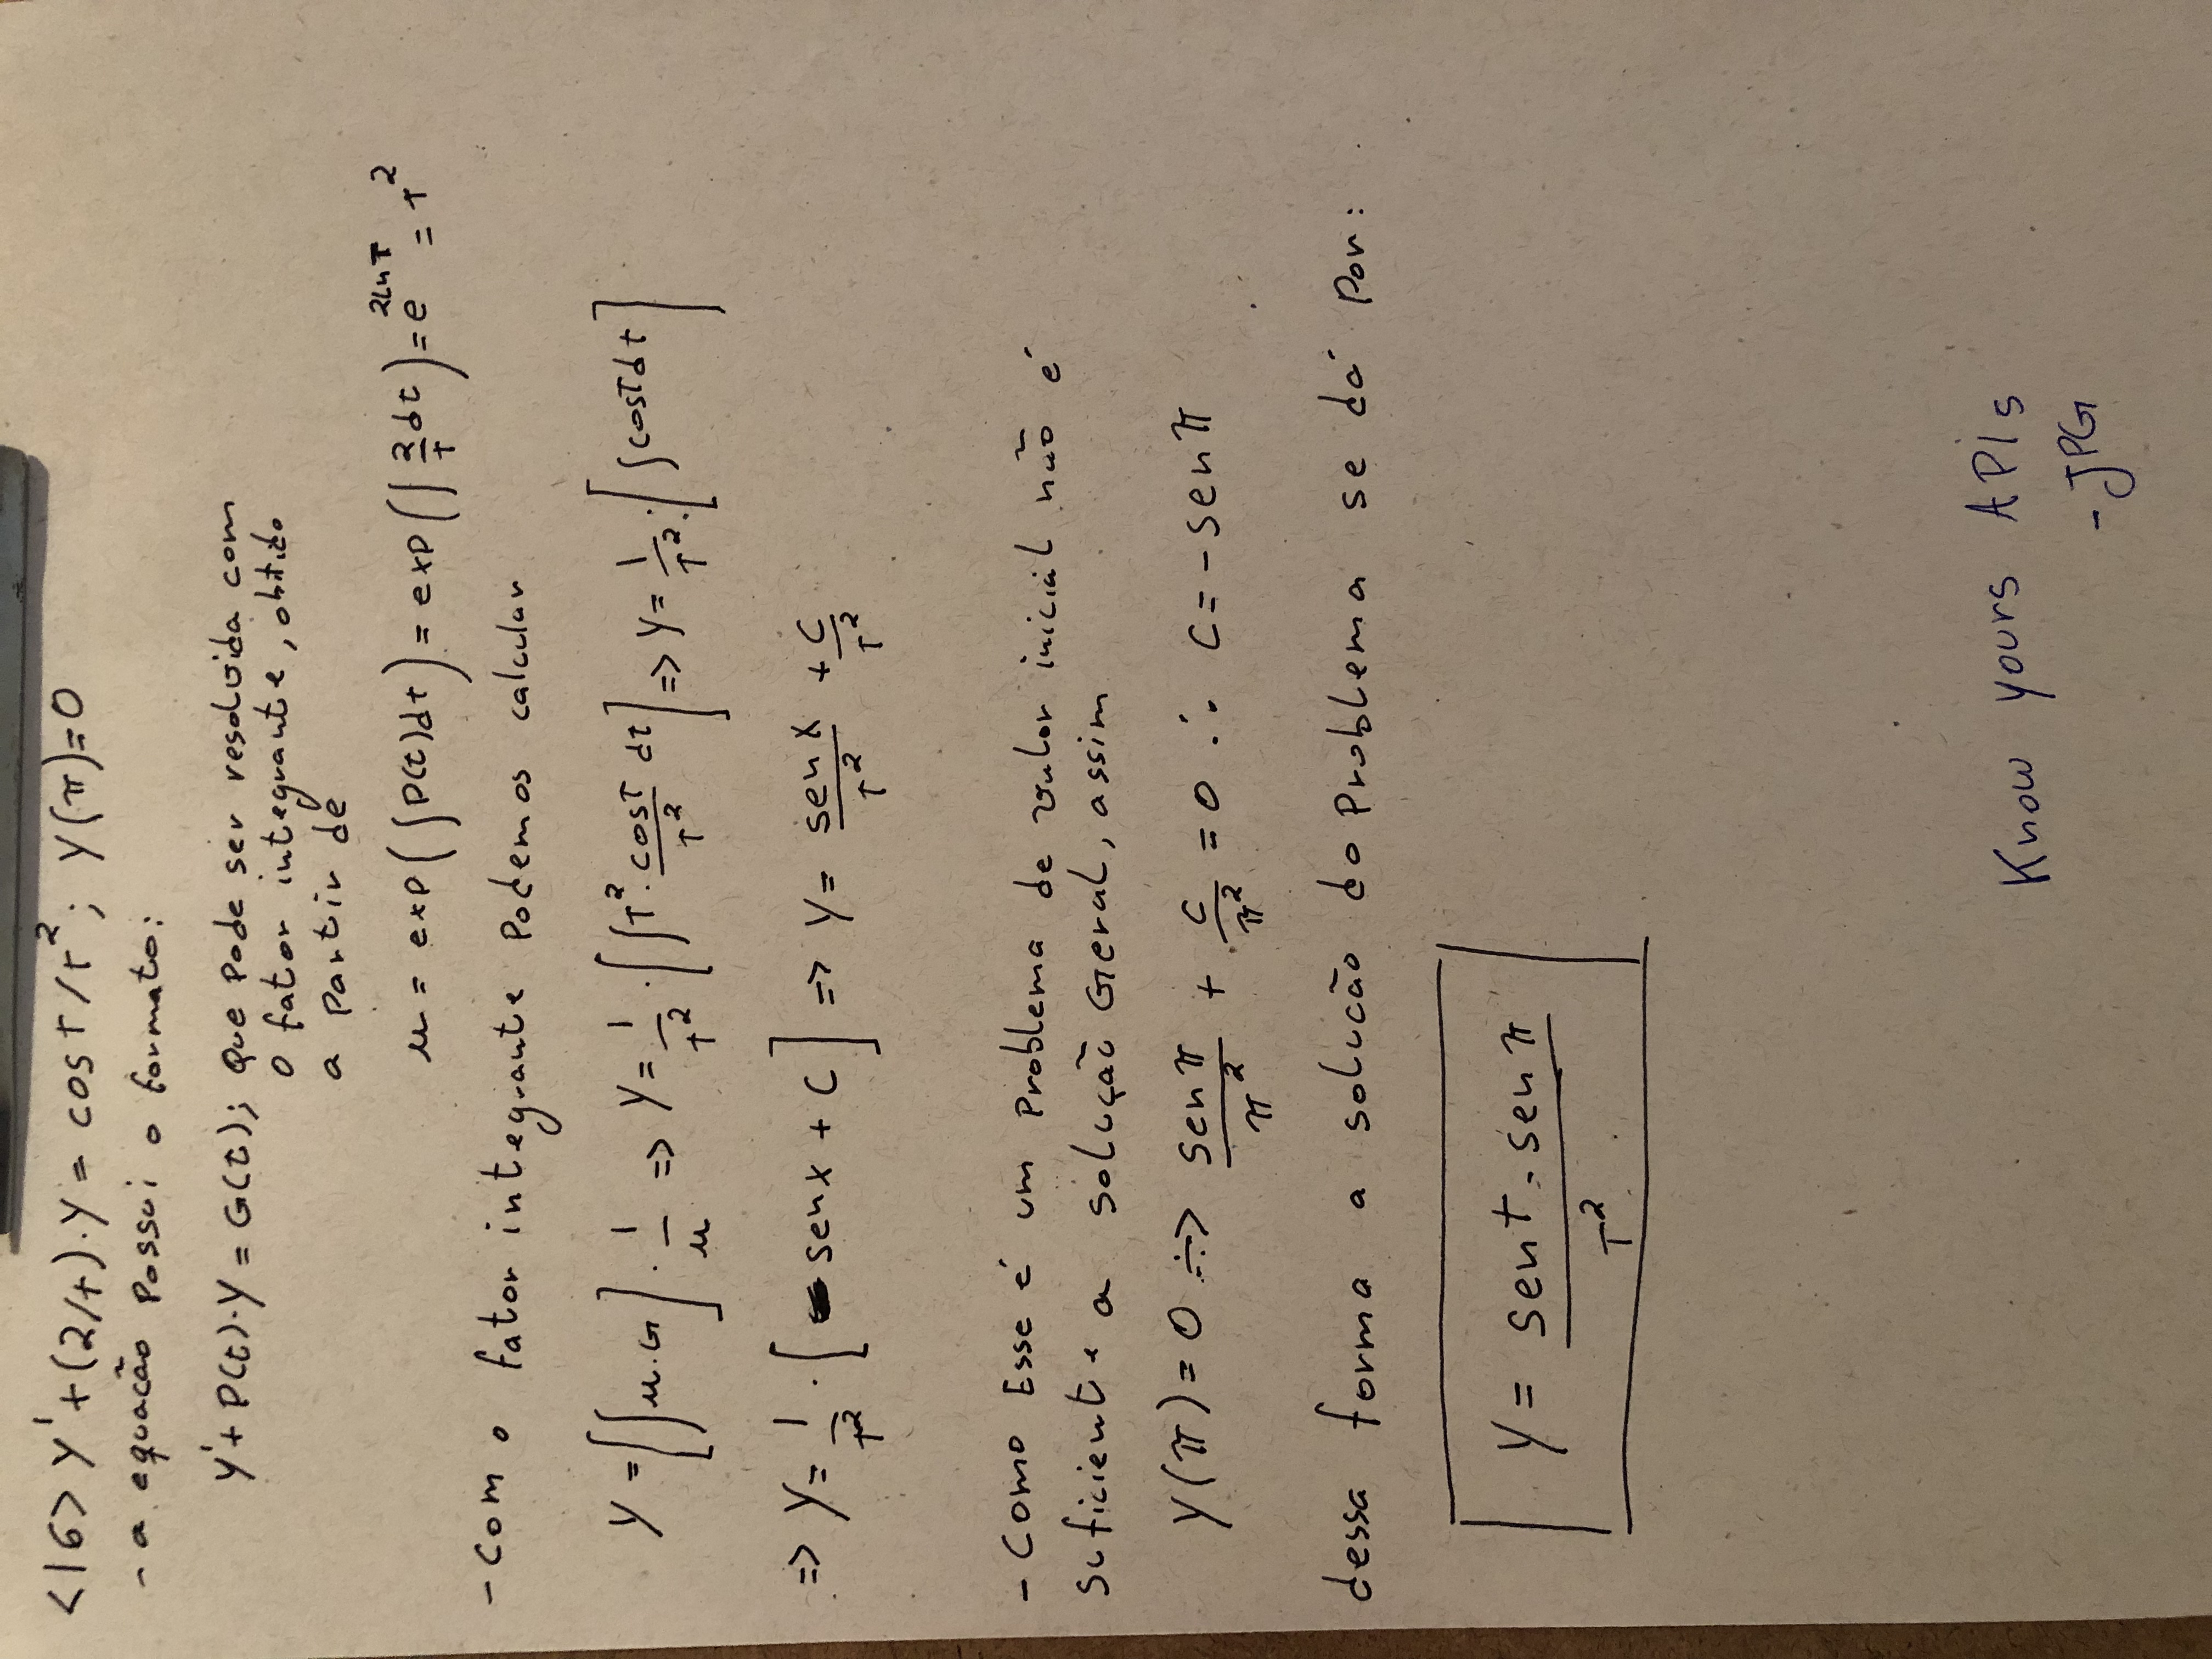 <16> y' + (2/t)·y = cos t / t²; y(π)=0
- a equacão possui o formato:
y' + P(t)·y = G(t); que pode ser resolvida com
o fator integrante, obtido
a partir de
μ = exp(∫P(t)dt) = exp(∫ 2/t dt) = e^{2ln t} = t²
- Com o fator integrante podemos calcular
y = [∫μ.G] · 1/μ => y = 1/t² · [∫t² · cos t/t² dt] => y = 1/t² · [∫cos t dt]
=> y = 1/t² · [sen x + C] => y = sen x/t² + C/t²
- Como Esse é um problema de valor inicial não é
suficiente a solução Geral, assim
y(π) = 0 ∴=> sen π/π² + C/π² = 0 ∴ C = -sen π
dessa forma a solucão do problema se dá por:
y = (sen t - sen π)/t²
Know yours APIs
- JPG